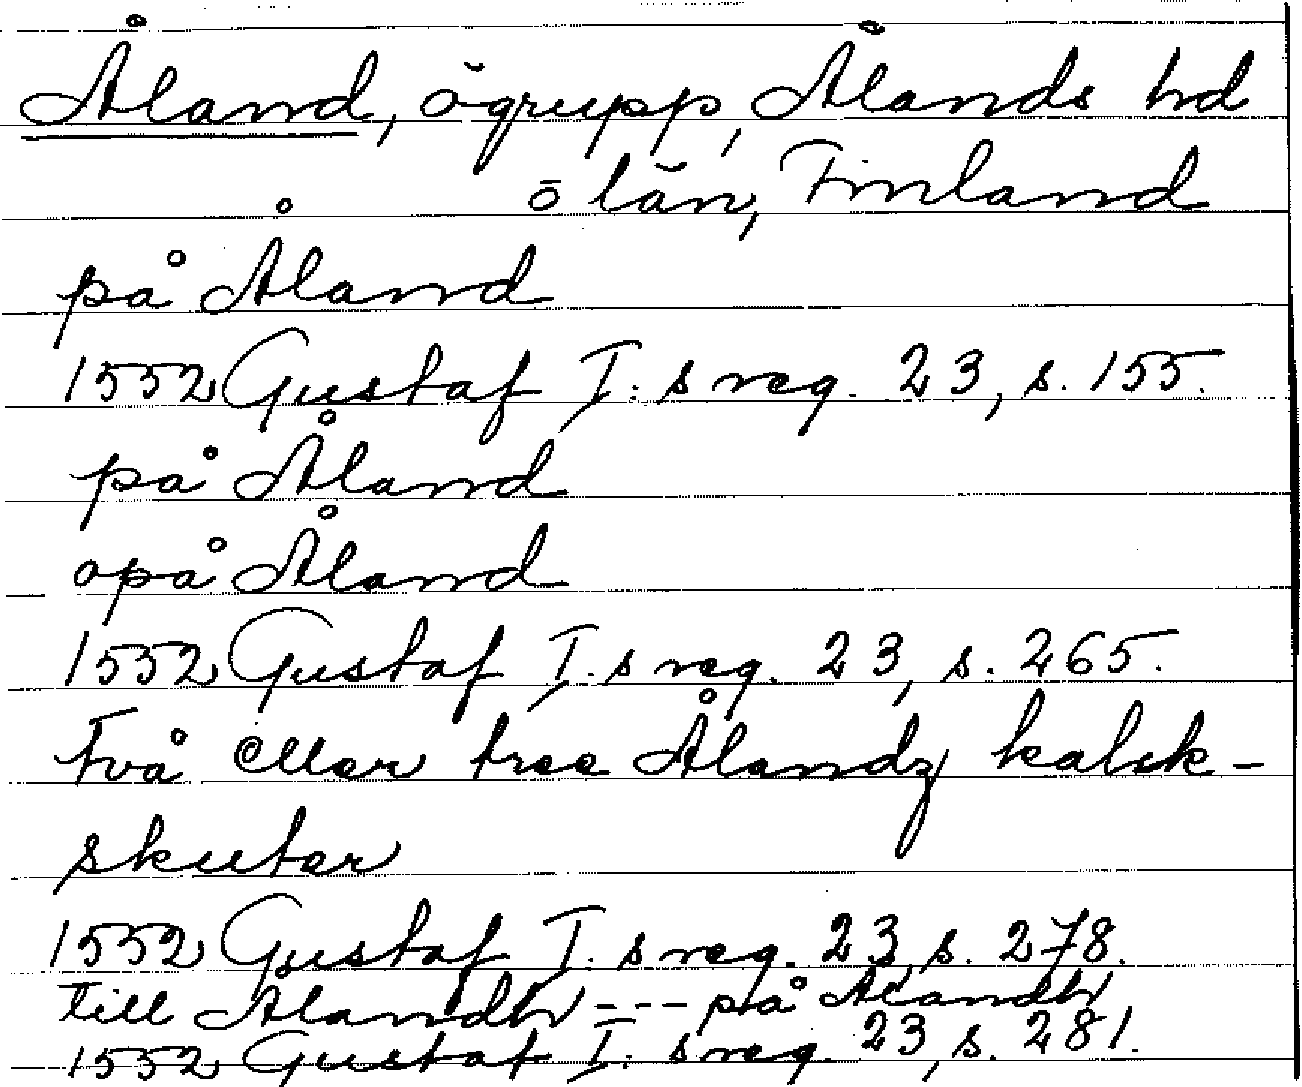 Åland, ögrupp, Ålands hd
ō län, Finland
på Åland
1552 Gustaf I:s reg. 23, s. 155.
på Åland
opå Åland
1552 Gustaf I:s reg. 23, s. 265.
Två eller tree Ålandz kalck-
skutor
1552 Gustaf I:s reg. 23, s. 278.
till Alandh --- på Alandh
1552 Gustaf I:s reg. 23, s. 281.